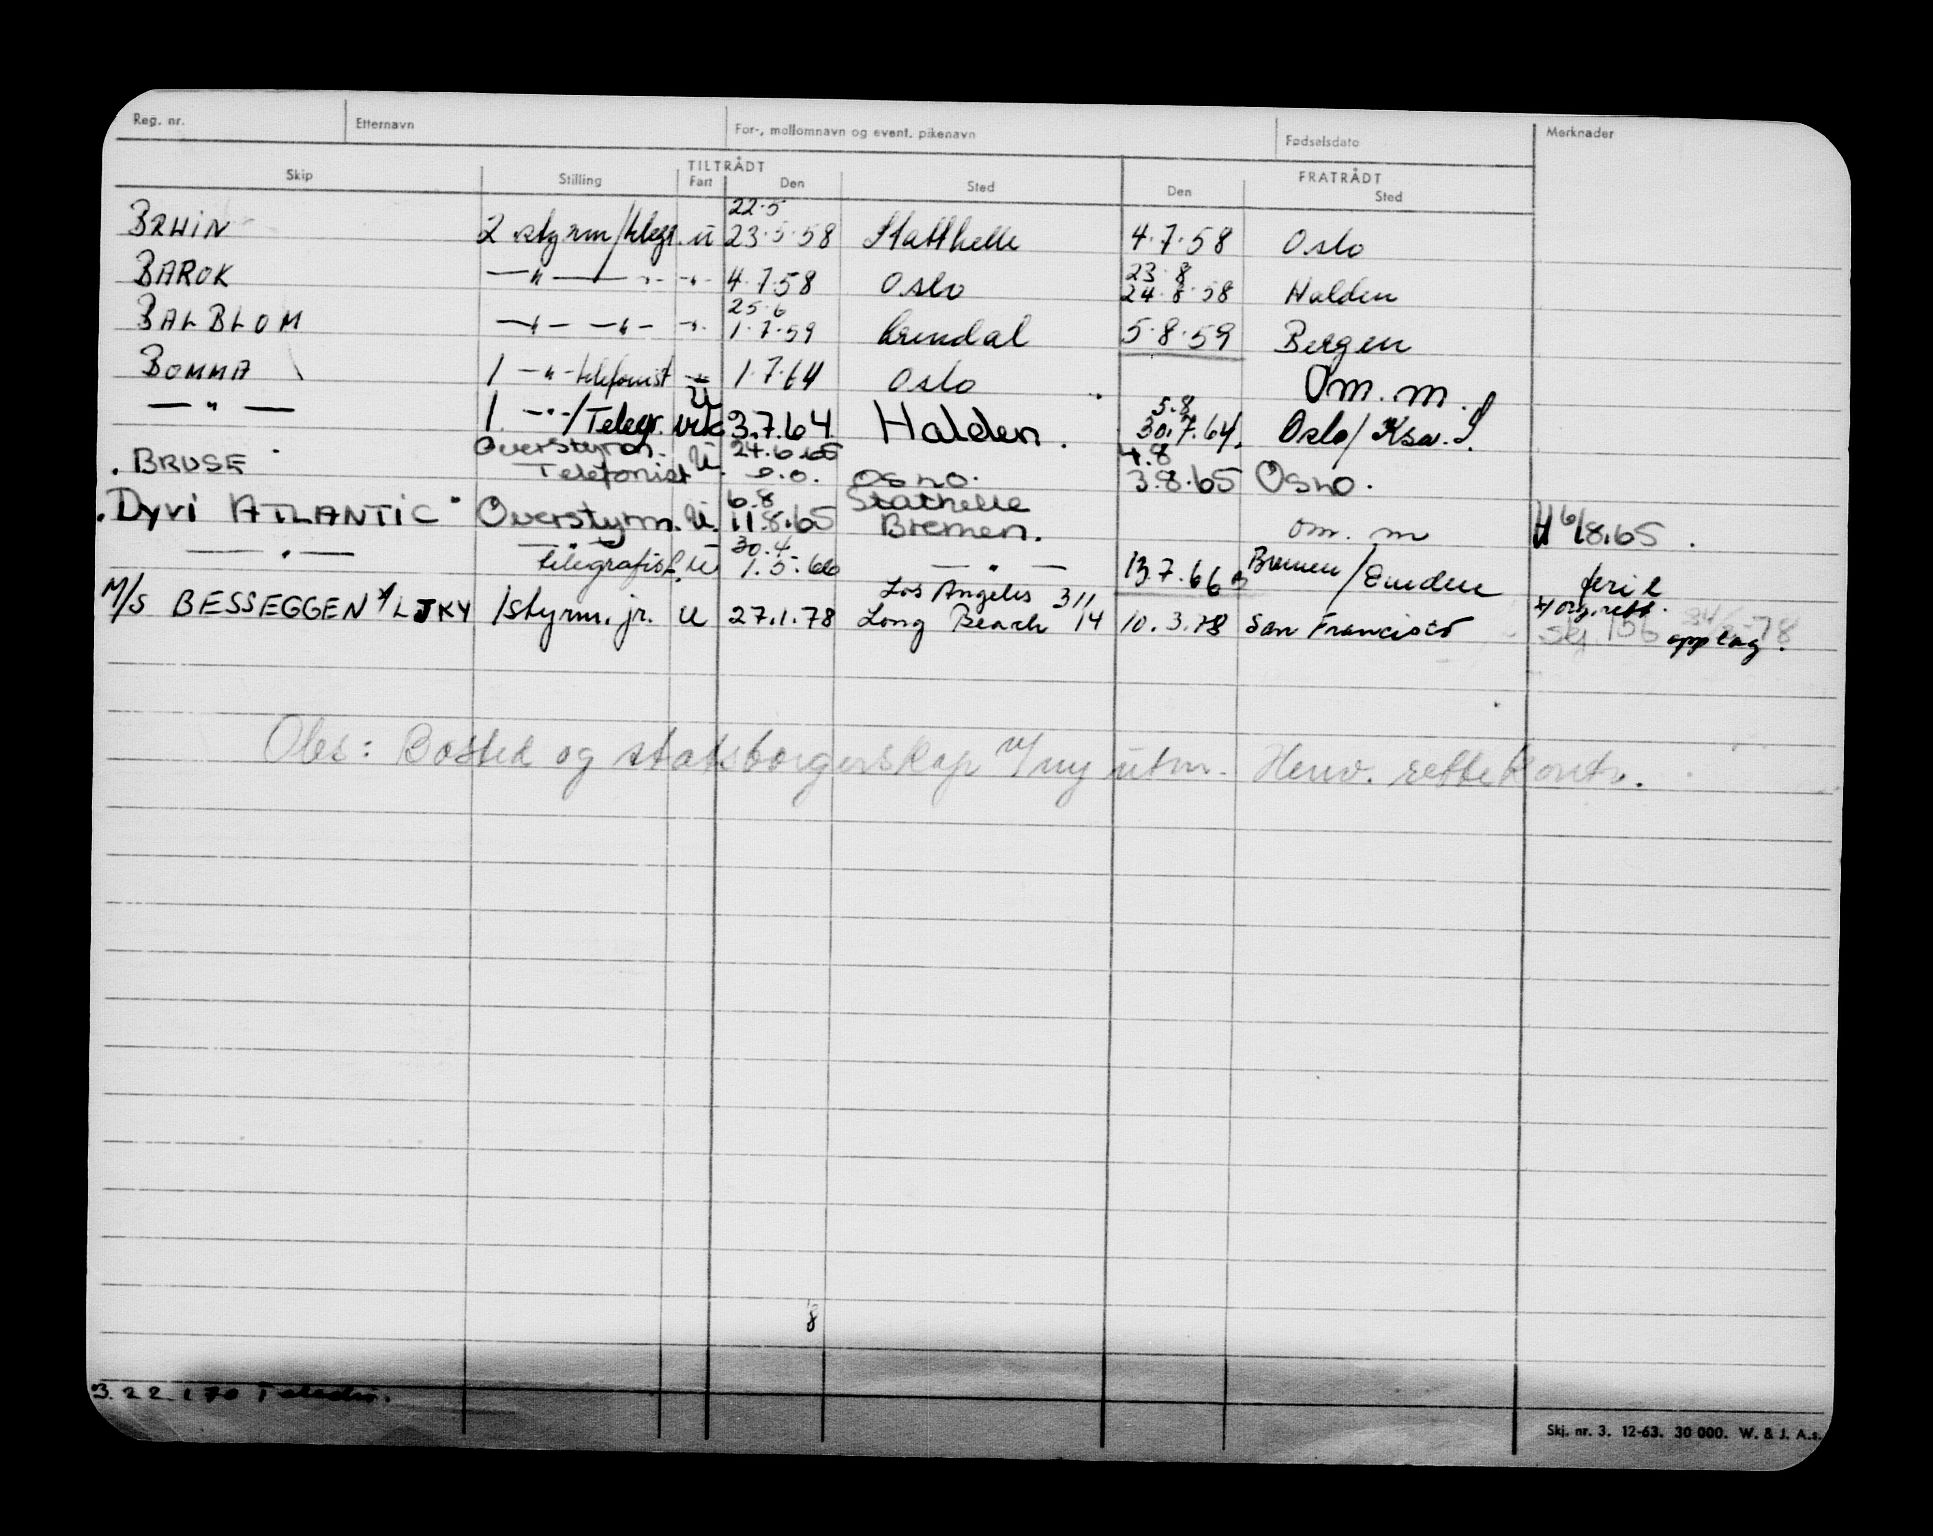 Reg. nr. Etternavn For-, mellomnavn og event. pikenavn Fødselsdato Merknader
TILTRÅDT FRATRÅDT
Skip Stilling Fart Den Sted Den Sted
22.5
BRUIN 2 styrm/telegr. u 23.5.58 Statthelle 4.7.58 Oslo
23.8
BAROK —"— " " 4.7.58 Oslo 24.8.58 Halden
25.6
BALBLOM —"— —"— " 1.7.59 Arendal 5.8.59 Bergen
BOMMA 1 —"— telefonist " 1.7.64 Oslo Om. m.
5.8
—"— 1. —"—/Telegr. U 3.7.64 Halden. 30.7.64. Oslo/
Overstyrm. 24.6.65 4.8
. BRUSE Telefonist U. Osno. 3.8.65 Osno.
6.8 Stathelle
. Dyvi ATLANTIC Overstyrm. U. 11.8.65 Bremen. om. m 6/8.65.
30.4
—"— telegrafist U 1.5.66 —"— 13.7.66 Bremen/Emden ferie
Los Angeles 311
M/S BESSEGGEN /LJKY 1styrm. jr. U 27.1.78 Long Beach 14 10.3.78 San Francisco opplag.
Obs: Bosted og statsborgerskap v/ny utm. Henv. rettekontr.
8
Skj. nr. 3. 12-63. 30 000. W. & J. A.s.